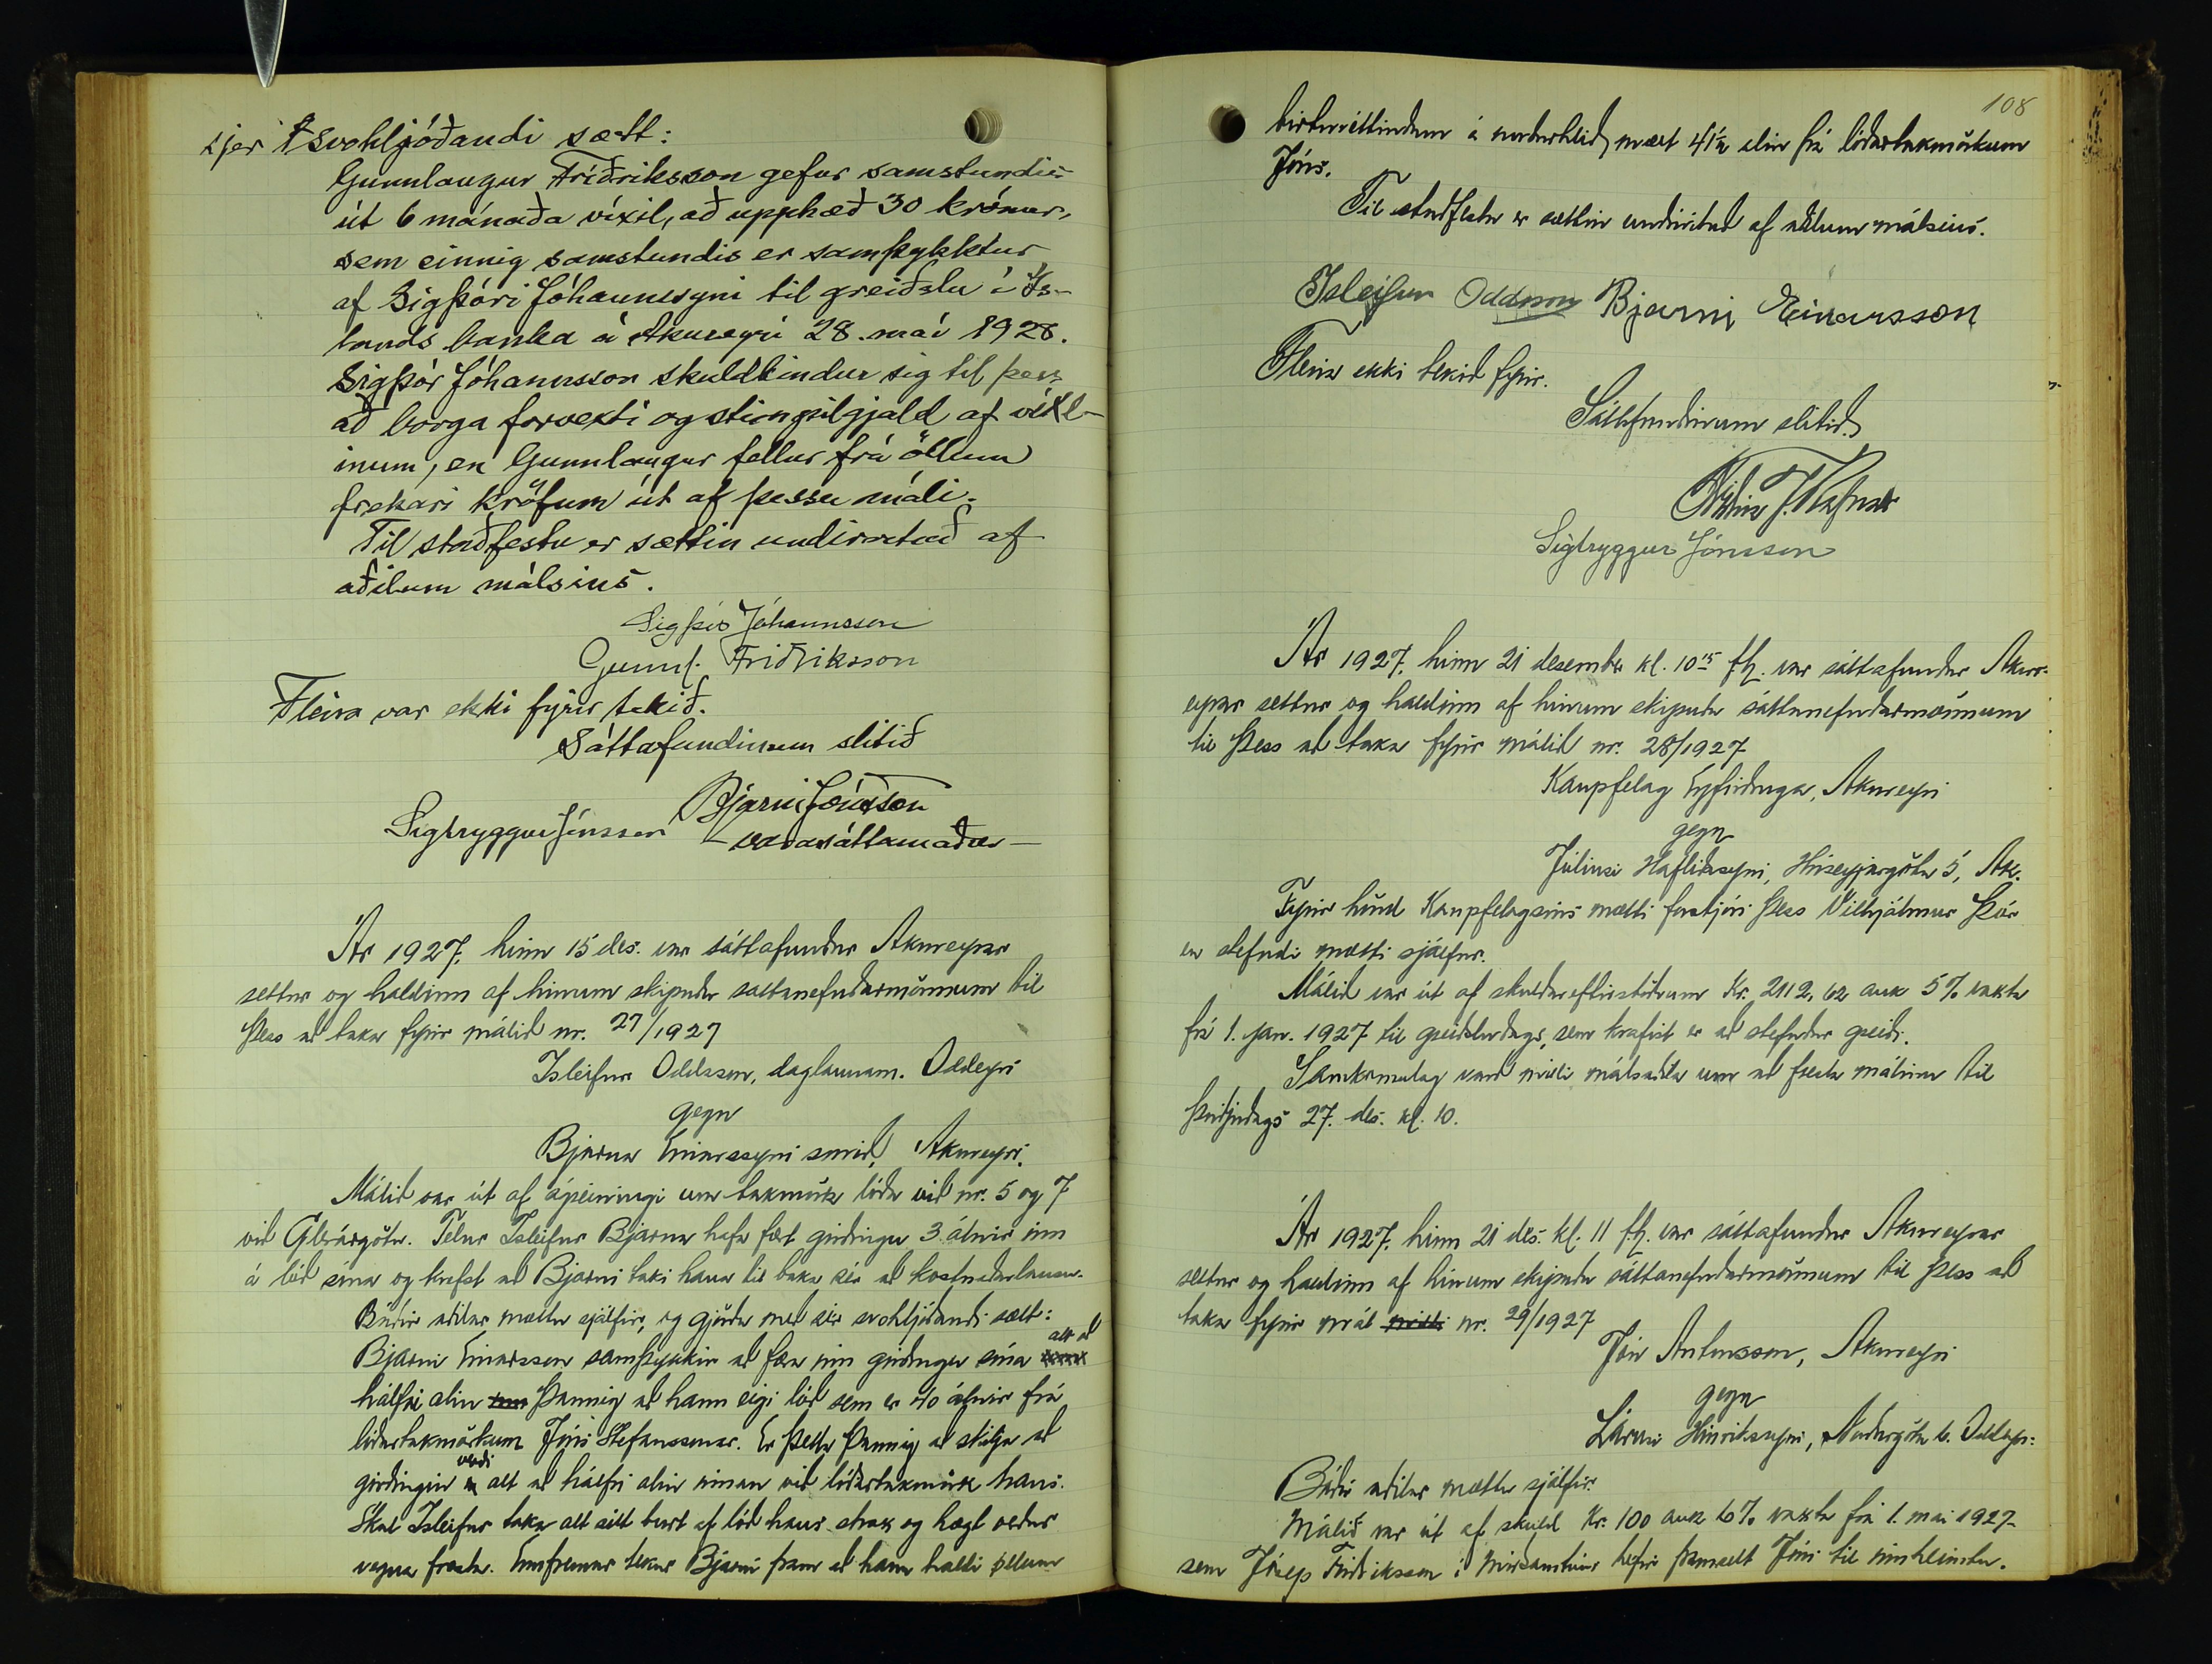 sjer svohljóðandi sætt:
Gunnlaugur Friðriksson gefur samstundis
út 6 mánaða víxil, að upphæð 30 krónur,
sem einnig samstundis er samþykktur
af Sigþóri Jóhannssyni til greiðslu í Ís-
lands banka á Akureyri 28. maí 1928.
Sigþór Jóhannsson skuldbindur sig til þess
að borga forvexti og stimpilgjald af víxl-
inum, en Gunnlaugur fellur frá öllum
frekari kröfum út af þessu máli.
Til staðfestu er sættin undirrituð af
aðilum málsins.
Sigþór Jóhannsson
Gunnl. Friðriksson
Fleira var ekki fyrir tekið.
Sáttafundinum slitið
Bjarni Jónsson
Sigtryggur Jónsson - varasáttamaður -
Ár 1927, hinn 15 des. var sáttafundur Akureyrar
settur og haldinn af hinum skipuðu sáttanefndarmönnum til
þess að taka fyrir málið nr. 27/1927
Isleifur Oddsson, daglaunam. Oddeyri
gegn
Bjarna Einarssyni smið, Akureyri.
Málið var út af ágreiningi um takmörk lóða við nr. 5 og 7
við Glerárgötu. Telur Isleifur Bjarna hafa fært girðingu 3 álnir inn
á lóð sína og krefst að Bjarni taki hana til baka sér að kostnaðarlausu.
Báðir aðilar mættu sjálfir, og gjörðu með sér svohljóðandi sætt:
Bjarni Einarsson samþykkir að færa inn girðingu sína alt að
hálfri alin þannig að hann eigi lóð sem er 40 álnir frá
lóðartakmörkum Jóns Stefanssonar. Er þetta þannig að skilja að
girðingin verði alt að hálfri alin innan við lóðartakmörk hans.
Skal Isleifur taka alt sitt burt af lóð hans strax og hægt verður
vegna frosta. Ennfremur tekur Bjarni fram að hann haldi öllum
108
birturéttindum á norðurhlið, mælt 41½ alin frá lóðartakmörkum
Jóns.
Til staðfestu er sættin undirrituð af aðilum málsins.
Isleifur Oddsson Bjarni Einarsson
Fleira ekki tekið fyrir.
Sáttafundinum slitið.
Sigtryggur Jónsson
Ár 1927, hinn 21 desember kl. 10¹⁵ fh. var sáttafundur Akur-
eyrar settur og haldinn af hinum skipuðu sáttanefndarmönnum
til þess að taka fyrir málið nr. 28/1927
Kaupfelag Eyfirðinga, Akureyri
gegn
Júlíusi Hafliðasyni, Hríseyjargötu 5, Ak.
Fyrir hönd Kaupfelagsins mætti forstjóri þess Vilhjálmur Þór
en stefndi mætti sjálfur.
Málið var út af skuldareftirstöðvum Kr. 2112,62 auk 5% vaxta
frá 1. jan. 1927 til greiðsludags, sem krafist er að stefndur greiði.
Samkomulag varð milli málsaðila um að fresta málinu til
þriðjudags 27. des. kl. 10.
Ár 1927, hinn 21 des. kl. 11 fh. var sáttafundur Akureyrar
settur og haldinn af hinum skipuðu sáttanefndarmönnum til þess að
taka fyrir mál milli nr. 29/1927
Jón Antonsson, Akureyri
gegn
Lárusi Hinrikssyni, Norðurgötu 6. Oddeyri.
Báðir aðilar mættu sjálfir.
Málið var út af skuld Kr. 100 auk 6% vaxta frá 1. mai 1927
sem Jósep Friðriksson í hefir framselt Jóni til innheimtu.